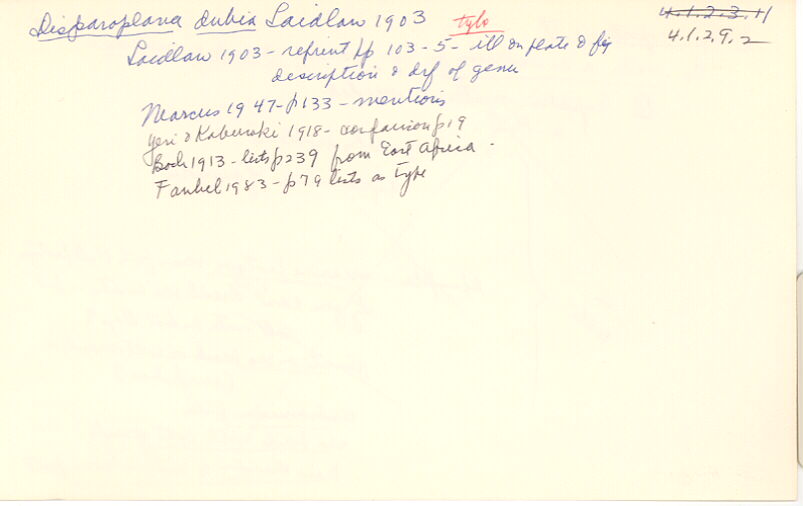 Disparoplana dubia Laidlaw 1903 type
4.1.2.3.11
4.1.2.9.2
Laidlaw 1903 - reprint pp 103-5 - ill on plate & fig
description & def of genus
Marcus 1947 - p133 - mentions
Yeri & Kaburaki 1918 - comparison p19
Bock 1913 - lists p239 from East Africa.
Faubel 1983 - p79 lists as type